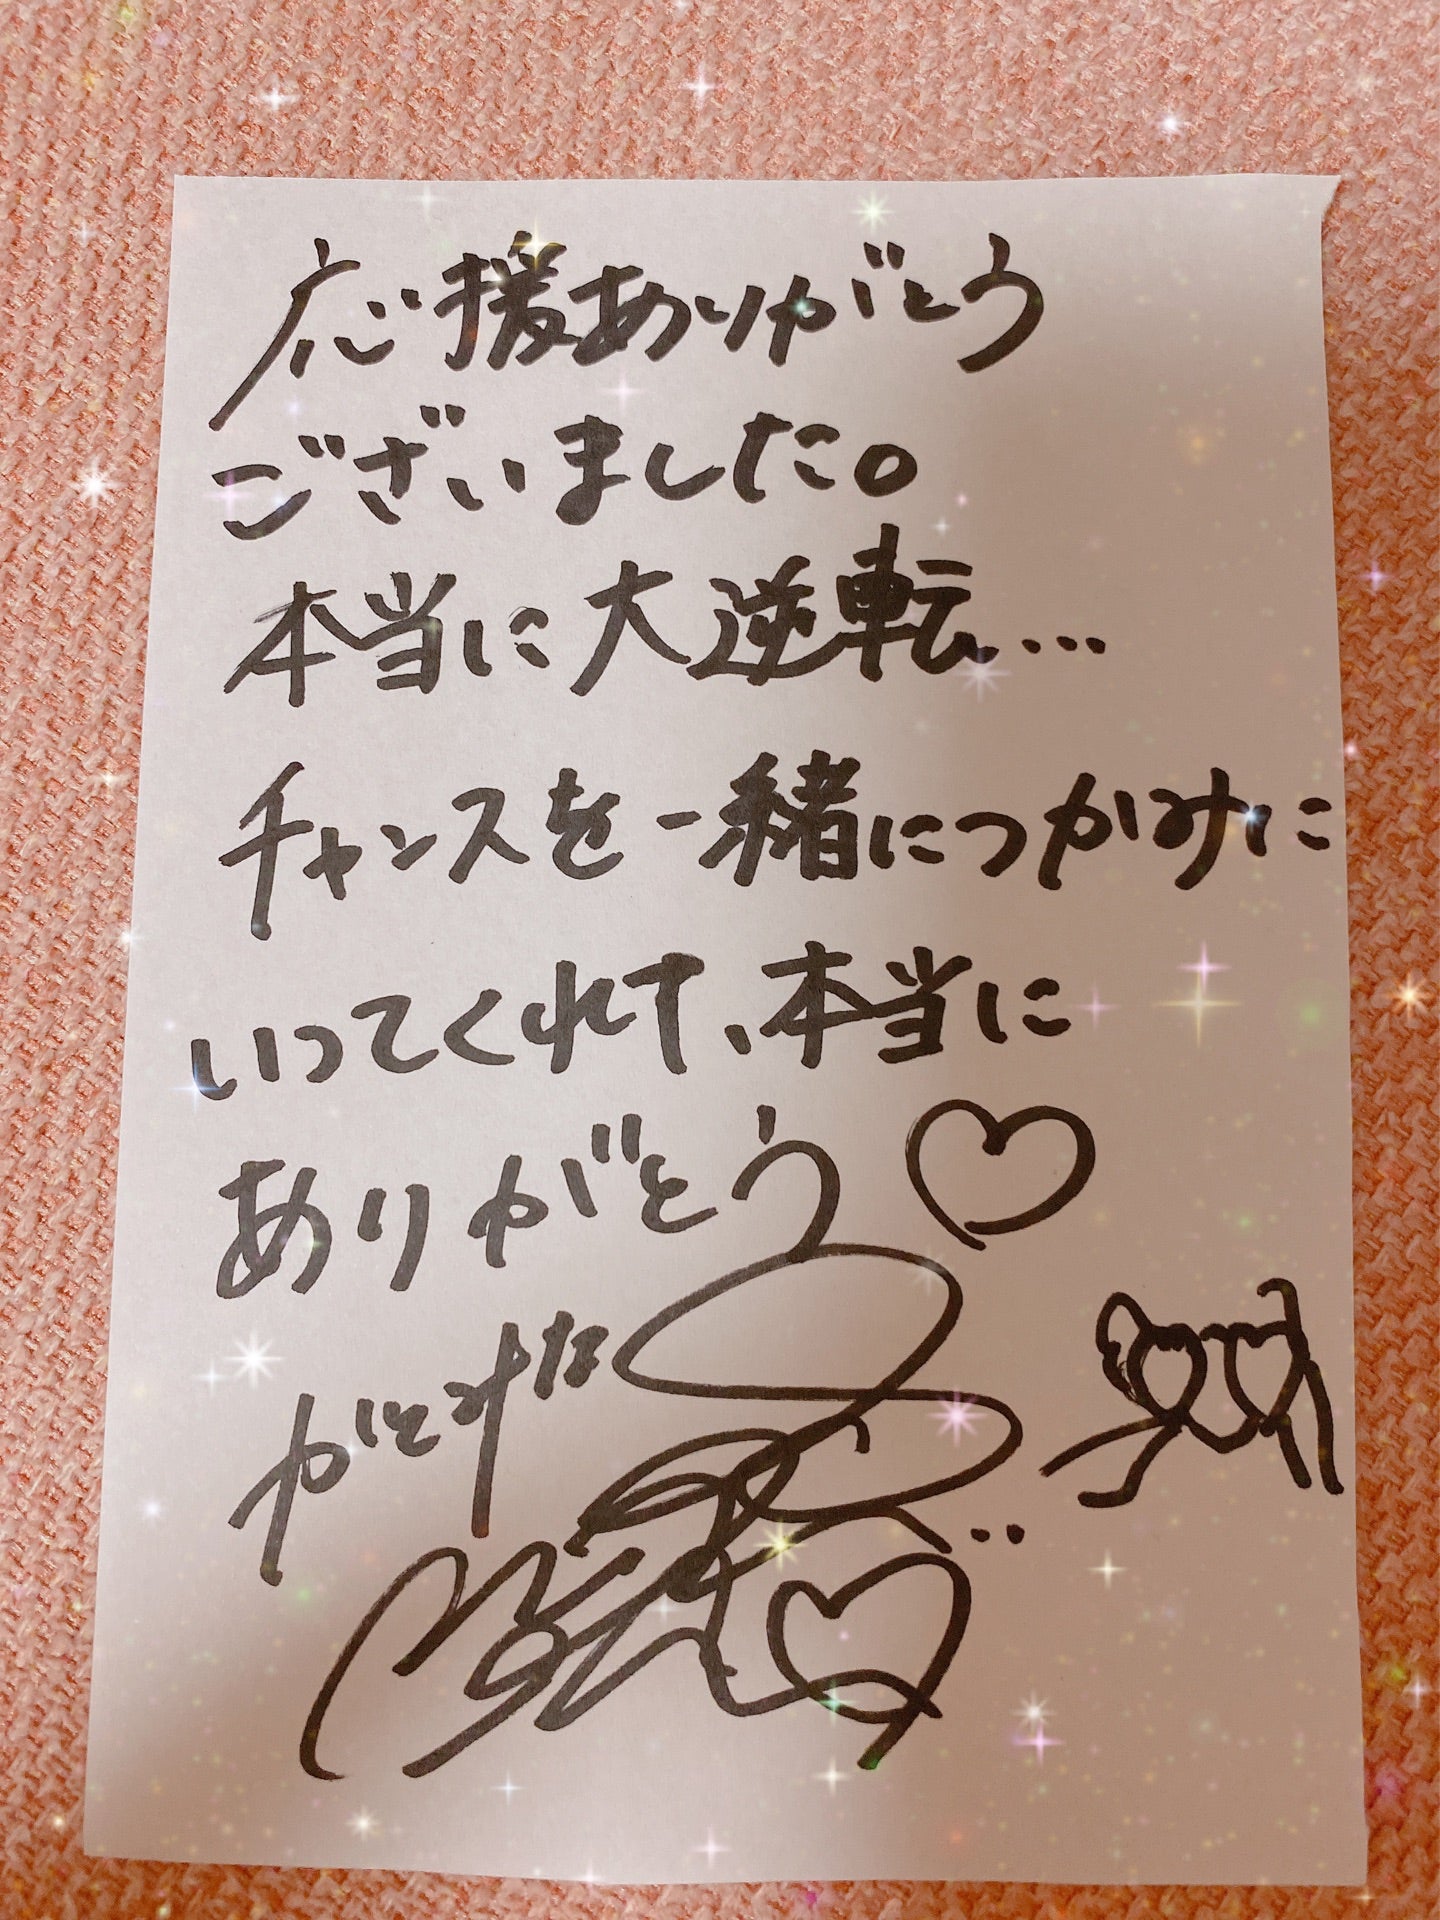 応援ありがとう
ございました。
本当に大逆転...
チャンスを一緒につかみに
いってくれて、本当に
ありがとう♡